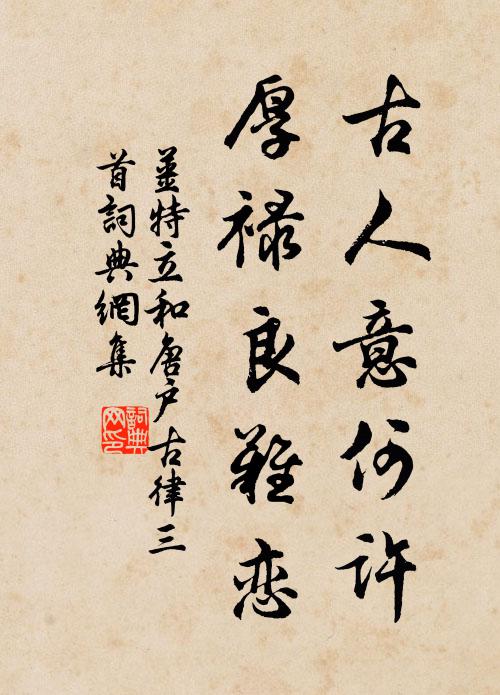 古人意何许
厚禄良难恋
姜特立和唐户古律三
首词典網集
詞典网印